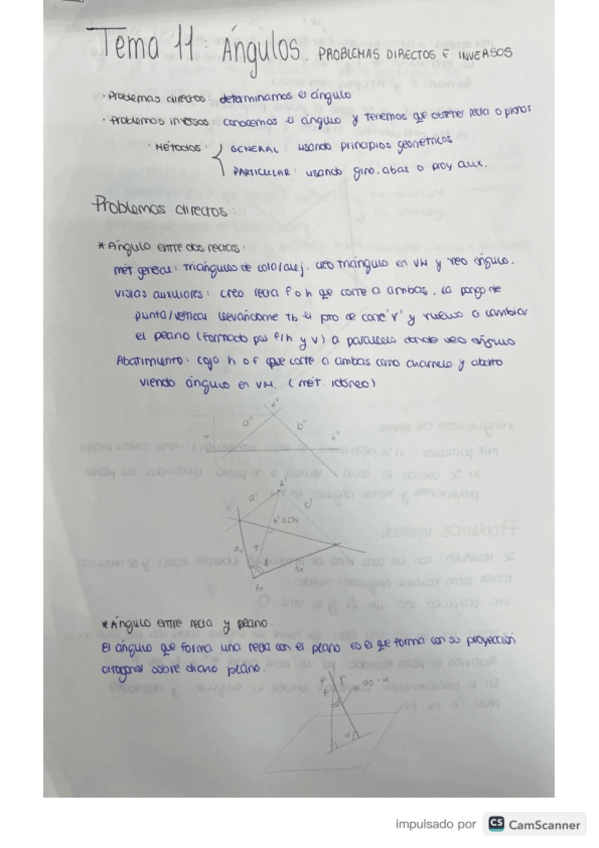 Tema 11: Ángulos. PROBLEMAS DIRECTOS E INVERSOS
· Problemas directos: determinamos el ángulo
· Problemas inversos: conocemos el ángulo y tenemos que obtener recta o planos
· MÉTODOS: GENERAL: usando principios geométricos
PARTICULAR: usando giro, abat o proy aux.
Problemas directos:
* Ángulo entre dos rectas:
mét general: triángulos de cota/alej. creo triángulo en VM y veo ángulo.
vistas auxiliares: creo recta f o h que corte a ambas, la pongo de
punta/vertical llevándome tb el pto de corte 'V' y vuelvo a cambiar
el plano (formado por f/h y V) a paralelo donde veo ángulo
Abatimiento: cojo h o f que corte a ambas como charnela y abato
viendo ángulo en VM. (mét. idóneo)
A''
a''
b''
h''
A'
a'
b'
h'≡Ch
a₀
b₀
A₀
* Ángulo entre recta y plano.
El ángulo que forma una recta con el plano es el que forma con su proyección
ortogonal sobre dicho plano.
P
r
t
90-α
α
impulsado por CS CamScanner